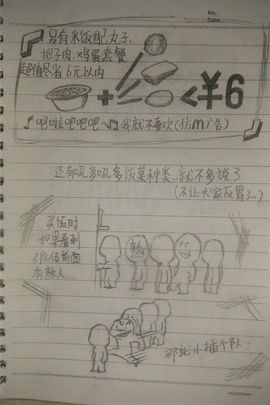 No.
Date
只有米饭配丸子、
把子肉、鸡蛋套餐
超值尽省6元以内
+ = <¥6
♪吧啦吧吧吧~♫我就不喜欢(仿m广告)
还有吼多吼多饭菜种类..就不多说了
(不让大家反胃了..)
买饭时
如果看到
了队伍前面
有熟人....
熟人
那就小插个队.